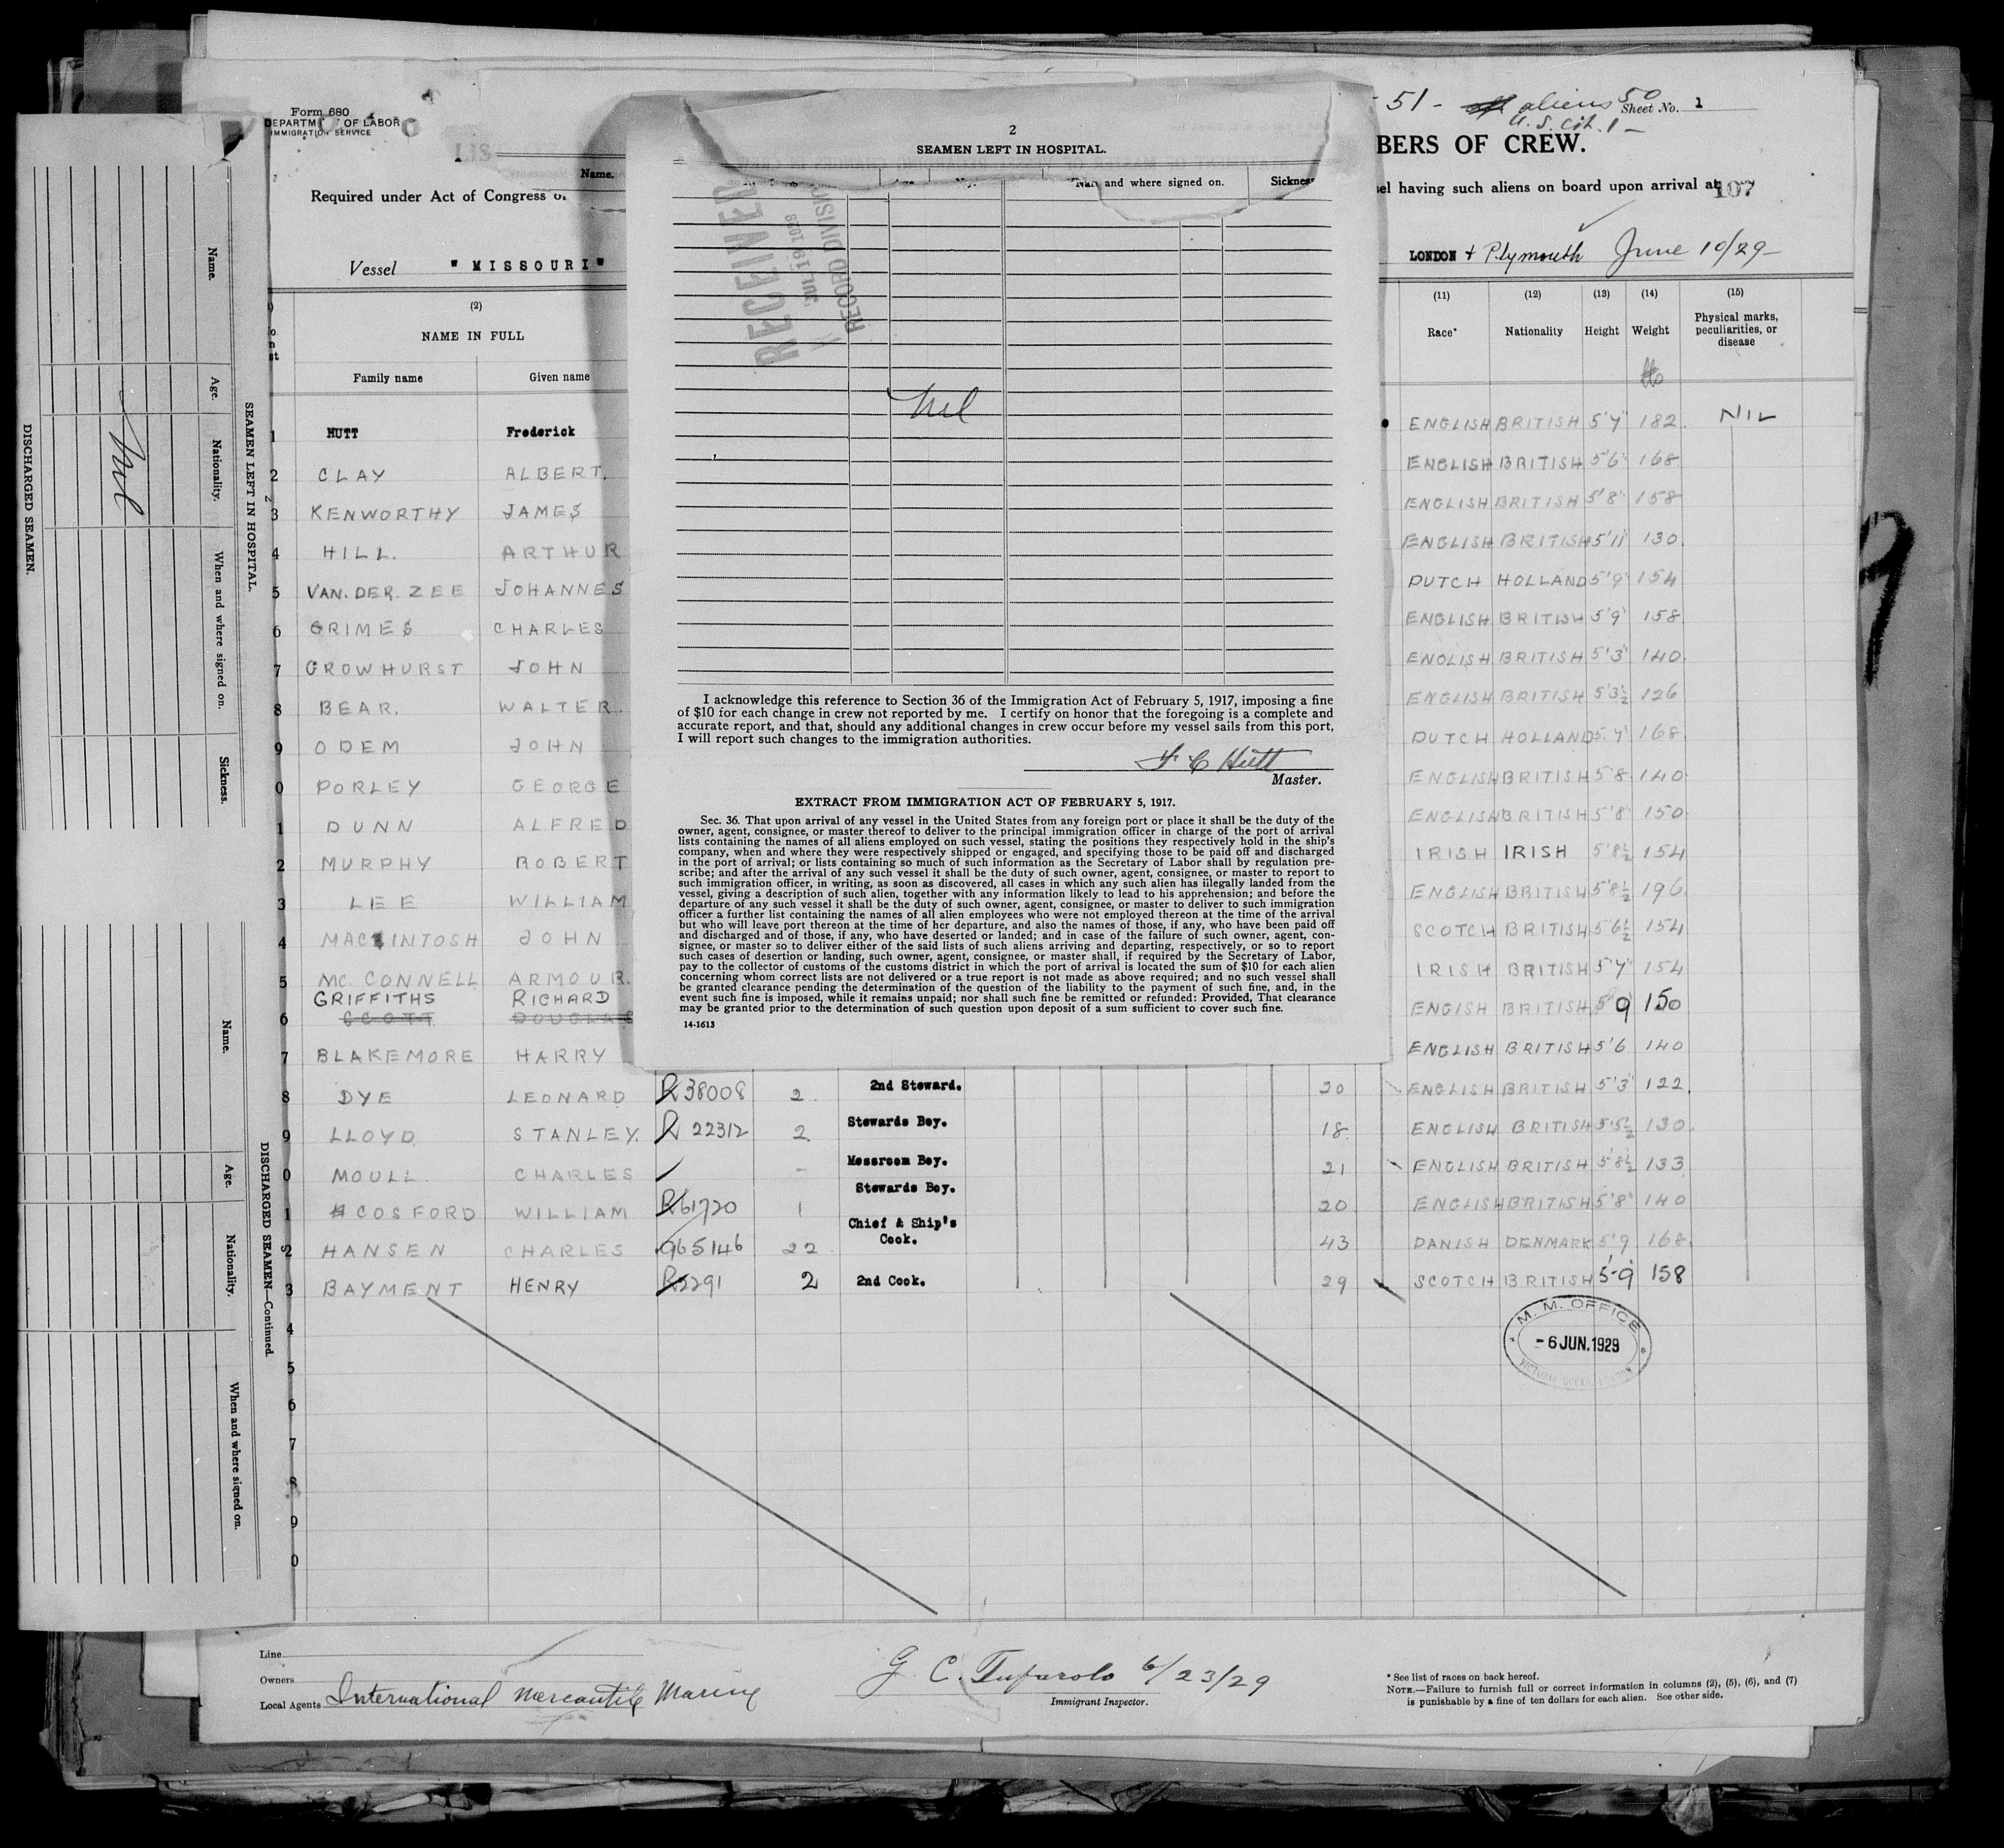 Form 680
DEPARTM OF LABOR
IMMIGRATION SERVICE
LIS
Name.
Required under Act of Congress
Vessel "MISSOURI"
51 - aliens 50
U.S. cit. 1 -
Sheet No. 1
BERS OF CREW.
el having such aliens on board upon arrival at
107
LONDON + Plymouth June 10/29 -
(2)
NAME IN FULL
Family name Given name
(11) (12) (13) (14) (15)
Race* Nationality Height Weight Physical marks, peculiarities, or disease
lbs
1 HUTT Frederick ENGLISH BRITISH 5'7" 182. NIL
2 CLAY ALBERT. ENGLISH BRITISH 5'6" 168
3 KENWORTHY JAMES ENGLISH BRITISH 5'8" 158
4 HILL. ARTHUR ENGLISH BRITISH 5'11" 130
5 VAN. DER. ZEE JOHANNES DUTCH HOLLAND 5'9" 154
6 GRIMES CHARLES ENGLISH BRITISH 5'9" 158
7 GROWHURST JOHN ENGLISH BRITISH 5'3" 140
8 BEAR. WALTER. ENGLISH BRITISH 5'3½ 126
9 ODEM JOHN DUTCH HOLLAND 5'7" 168
0 PORLEY GEORGE ENGLISH BRITISH 5'8 140
1 DUNN ALFRED ENGLISH BRITISH 5'8" 150
2 MURPHY ROBERT IRISH IRISH 5'8½ 154
3 LEE WILLIAM ENGLISH BRITISH 5'8½ 196
4 MACKINTOSH JOHN SCOTCH BRITISH 5'6½ 154
5 MC. CONNELL ARMOUR. IRISH BRITISH 5'7" 154
GRIFFITHS RICHARD
6 SCOTT DOUGLAS ENGISH BRITISH 5'9 150
7 BLAKEMORE HARRY ENGLISH BRITISH 5'6 140
8 DYE LEONARD R38008 2 2nd Steward. 20 ENGLISH BRITISH 5'3" 122
9 LLOYD STANLEY. R 22312 2 Stewards Boy. 18 ENGLISH BRITISH 5'5½ 130
0 MOULL CHARLES - Messroom Boy. 21 ENGLISH BRITISH 5'8½ 133
1 COSFORD WILLIAM R61720 1 Stewards Boy. 20 ENGLISH BRITISH 5'8" 140
2 HANSEN CHARLES 965146 22 Chief & Ship's Cook. 43 DANISH DENMARK 5'9 168
3 BAYMENT HENRY R2291 2 2nd Cook. 29 SCOTCH BRITISH 5-9 158
4
5
6
7
8
9
0
M. M. OFFICE
- 6 JUN. 1929
VICTORIA DOCKS, LONDON
Line
Owners
Local Agents International Mercantile Marine
G. C. Tufarolo 6/23/29
Immigrant Inspector.
* See list of races on back hereof.
NOTE.—Failure to furnish full or correct information in columns (2), (5), (6), and (7)
is punishable by a fine of ten dollars for each alien. See other side.
2
SEAMEN LEFT IN HOSPITAL.
and where signed on. Sickness
RECEIVED
JUL 19 1929
RECORD DIVISION
Nil
I acknowledge this reference to Section 36 of the Immigration Act of February 5, 1917, imposing a fine
of $10 for each change in crew not reported by me. I certify on honor that the foregoing is a complete and
accurate report, and that, should any additional changes in crew occur before my vessel sails from this port,
I will report such changes to the immigration authorities.
F C Hutt
Master.
EXTRACT FROM IMMIGRATION ACT OF FEBRUARY 5, 1917.
Sec. 36. That upon arrival of any vessel in the United States from any foreign port or place it shall be the duty of the
owner, agent, consignee, or master thereof to deliver to the principal immigration officer in charge of the port of arrival
lists containing the names of all aliens employed on such vessel, stating the positions they respectively hold in the ship's
company, when and where they were respectively shipped or engaged, and specifying those to be paid off and discharged
in the port of arrival; or lists containing so much of such information as the Secretary of Labor shall by regulation pre-
scribe; and after the arrival of any such vessel it shall be the duty of such owner, agent, consignee, or master to report to
such immigration officer, in writing, as soon as discovered, all cases in which any such alien has illegally landed from the
vessel, giving a description of such alien, together with any information likely to lead to his apprehension; and before the
departure of any such vessel it shall be the duty of such owner, agent, consignee, or master to deliver to such immigration
officer a further list containing the names of all alien employees who were not employed thereon at the time of the arrival
but who will leave port thereon at the time of her departure, and also the names of those, if any, who have been paid off
and discharged and of those, if any, who have deserted or landed; and in case of the failure of such owner, agent, con-
signee, or master so to deliver either of the said lists of such aliens arriving and departing, respectively, or so to report
such cases of desertion or landing, such owner, agent, consignee, or master shall, if required by the Secretary of Labor,
pay to the collector of customs of the customs district in which the port of arrival is located the sum of $10 for each alien
concerning whom correct lists are not delivered or a true report is not made as above required; and no such vessel shall
be granted clearance pending the determination of the question of the liability to the payment of such fine, and, in the
event such fine is imposed, while it remains unpaid; nor shall such fine be remitted or refunded: Provided, That clearance
may be granted prior to the determination of such question upon deposit of a sum sufficient to cover such fine.
14-1613
SEAMEN LEFT IN HOSPITAL.
Name. Age. Nationality. When and where signed on. Sickness.
Nil
DISCHARGED SEAMEN.
DISCHARGED SEAMEN—Continued.
Name. Age. Nationality. When and where signed on.
9